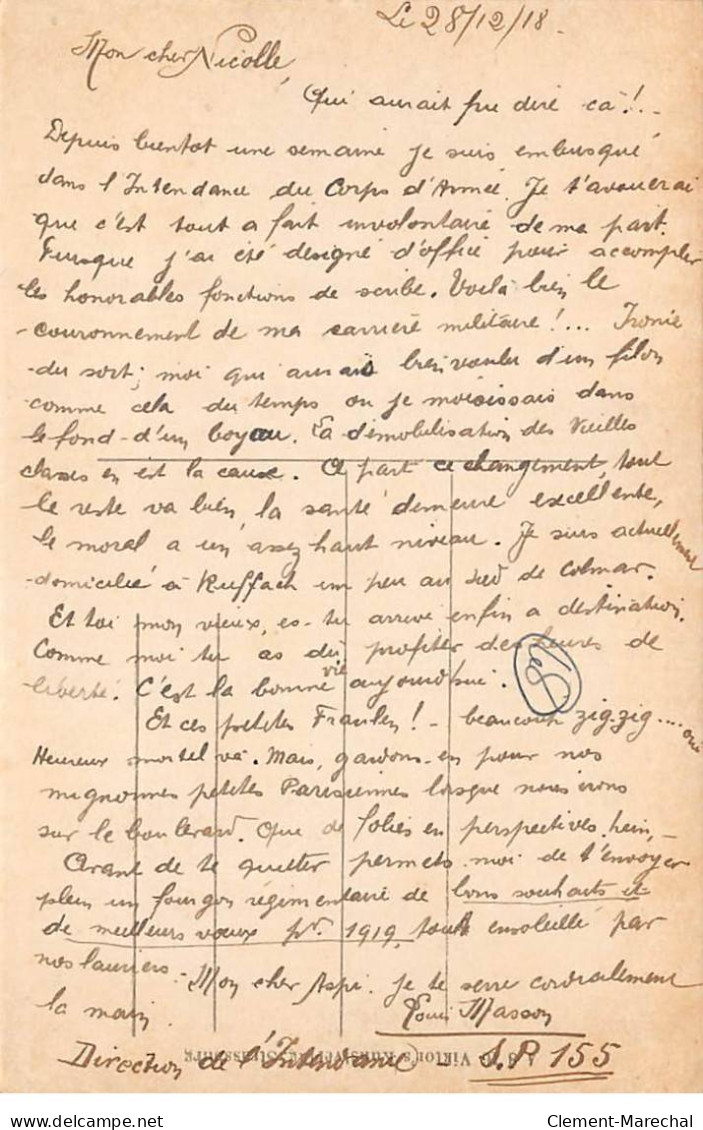 Le 28/12/18.
Mon cher Nicolle,
Qui aurait pu dire ça !..
Depuis bientot une semaine je suis embusqué
dans l'Intendance du Corps d'Armée. Je t'avouerai
que c'est tout a fait involontaire de ma part.
Puisque j'ai été désigné d'office pour accomplir
les honorables fonctions de scribe. Voilà bien le
couronnement de ma carrière militaire !... Ironie
du sort ; moi qui aurais bien voulu d'un filon
comme cela du temps ou je moisissais dans
le fond d'un boyau. La démobilisation des Vieilles
classes en est la cause. A part ce changement, tout
le reste va bien, la santé demeure excellente,
le moral a un assez haut niveau. Je suis actuellement
domicilié à Ruffach un peu au sud de Colmar.
Et toi mon vieux, es-tu arrivé enfin a destination.
Comme moi tu as dû profiter des heures de
liberté. C'est la bonne vie aujourd'hui.
Et ces petites Fraulen ! - beaucoup zig-zig.... oui
Heureux mortel va. Mais, gardons-en pour nos
mignonnes petites Parisiennes lorsque nous irons
sur le boulevard. Que de folies en perspectives, hein,-
Avant de te quitter permets-moi de t'envoyer
plein un fourgon régimentaire de bons souhaits et
de meilleurs voeux pr. 1919, tout ensoleillé par
nos lauriers. - Mon cher Aspi. je te serre cordialement
la main. Louis Masson
Direction de l'Intendance - S.P. 155
delcampe.net
Clement-Marechal